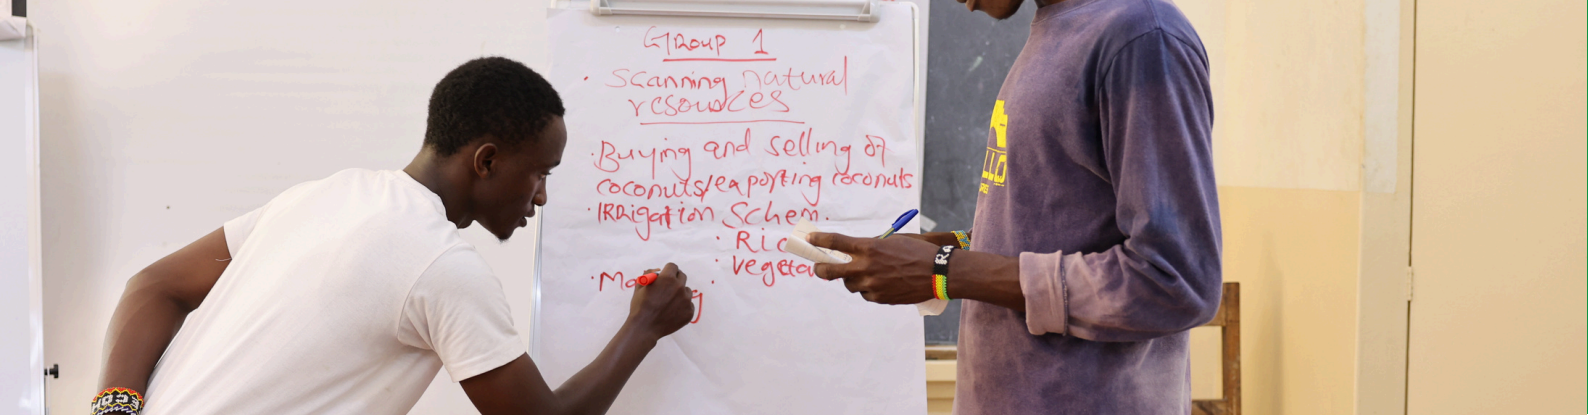 Group 1
· Scanning natural
resources
· Buying and selling of
coconuts/exporting coconuts
· IRRigation Schem.
· Ric
· Vegeta
· Ma
g
LLO